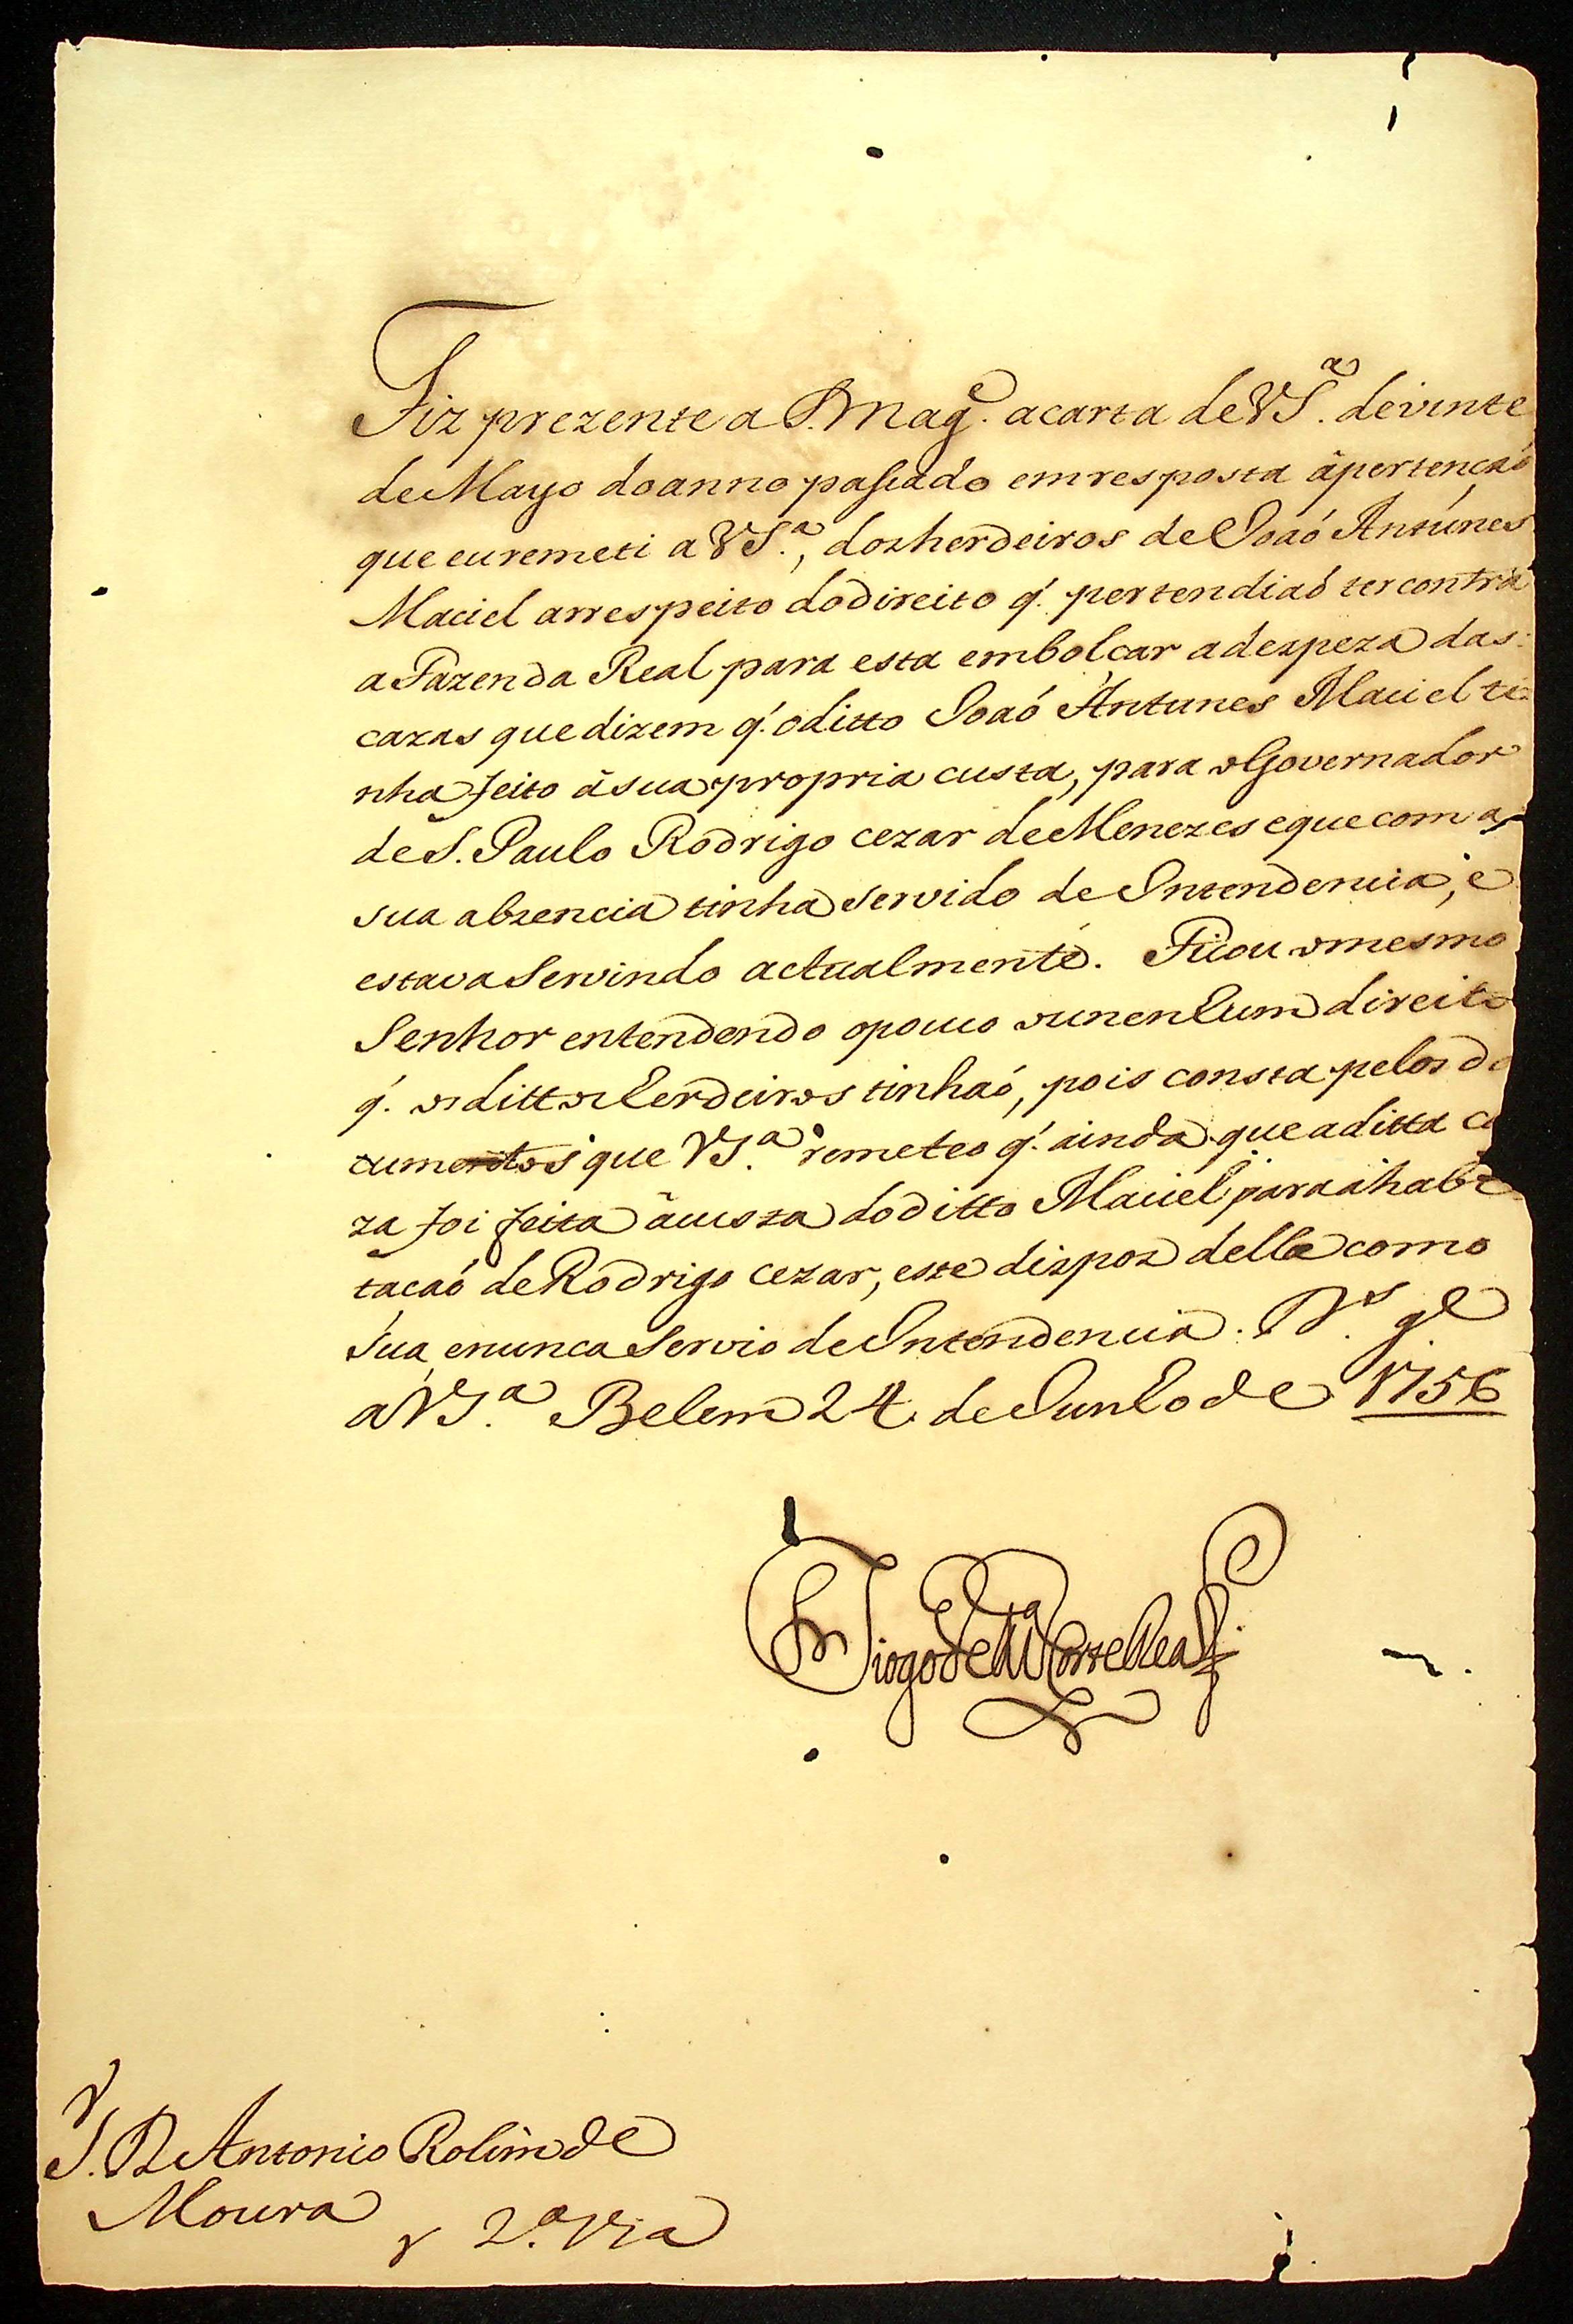 Fiz prezente a S. Mag.e a carta de VS.a de vinte
de Mayo do anno passado em resposta â pertenção
que eu remeti a VS.a, dos herdeiros de João Antúnes
Maciel arrespeito do direito q'. pertendiaó ter contra
a Fazenda Real para esta embolçar a despeza das
cazas que dizem q'. o ditto Joaó Antunes Maciel ti=
nha feito á sua propria custa, para o Governador
de S. Paulo Rodrigo cezar de Menezes e que com a
sua abzencia tinha servido de Intendencia, e
estava Servindo actualmente. Ficou o mesmo
Senhor entendendo o pouco ou nenhum direito
q'. os dittos herdeiros tinhaó, pois consta pelos do
cumentos que VS.a remeteo q'. ainda que a ditta ca
za foi feita â custa do ditto Maciel para a habi
tacaó de Rodrigo cezar, este dispoz della como
Sua, e nunca Servio de Intendencia. D.s g.e
a VS.a Belem 24 de Junho de 1756
Diogo de M.ça Corte Real
S.r D. Antonio Rolim de
Moura 2.a Via